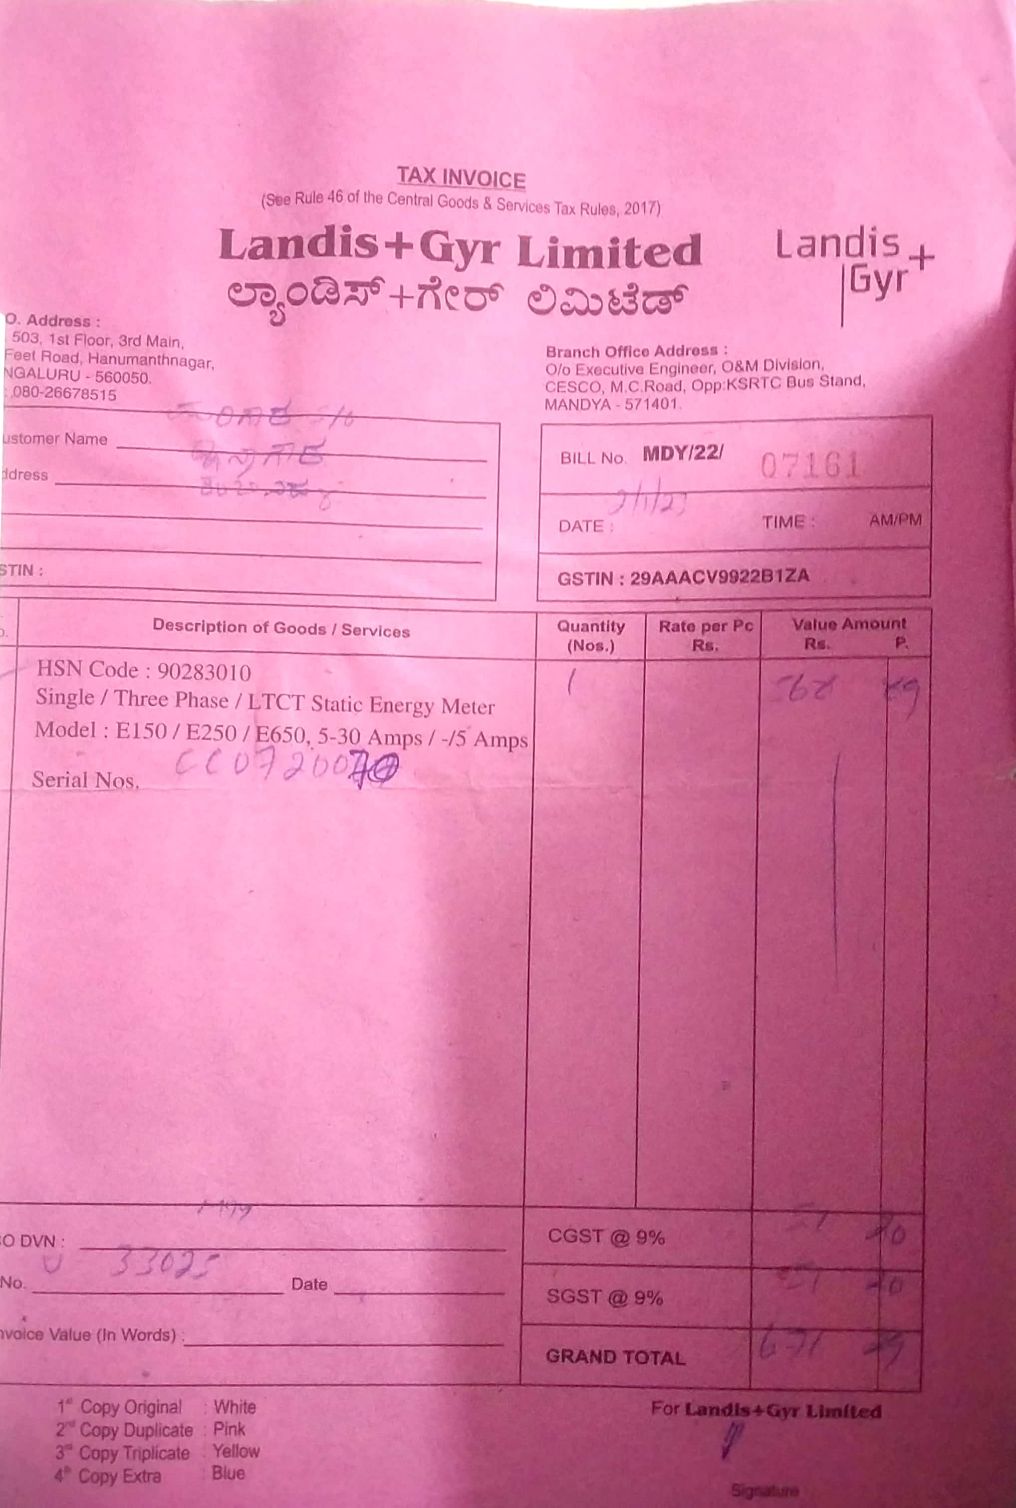 TAX INVOICE
(See Rule 46 of the Central Goods & Services Tax Rules, 2017)
Landis+Gyr Limited
ಲ್ಯಾಂಡಿಸ್+ಗೇರ್ ಲಿಮಿಟೆಡ್
Landis+
Gyr
O. Address :
503, 1st Floor, 3rd Main,
Feet Road, Hanumanthnagar,
NGALURU - 560050.
080-26678515
Branch Office Address :
O/o Executive Engineer, O&M Division,
CESCO, M.C.Road, Opp:KSRTC Bus Stand,
MANDYA - 571401.
ustomer Name
ddress
STIN :
BILL No. MDY/22/ 07161
DATE : TIME : AM/PM
GSTIN : 29AAACV9922B1ZA
Description of Goods / Services
Quantity (Nos.)
Rate per Pc Rs.
Value Amount
Rs. P.
HSN Code : 90283010
1
Single / Three Phase / LTCT Static Energy Meter
Model : E150 / E250 / E650, 5-30 Amps / -/5 Amps
Serial Nos. CC07200
O DVN :
No. 33025 Date
nvoice Value (In Words) :
CGST @ 9%
SGST @ 9%
GRAND TOTAL
1st Copy Original : White
2nd Copy Duplicate : Pink
3rd Copy Triplicate : Yellow
4th Copy Extra : Blue
For Landis+Gyr Limited
Signature